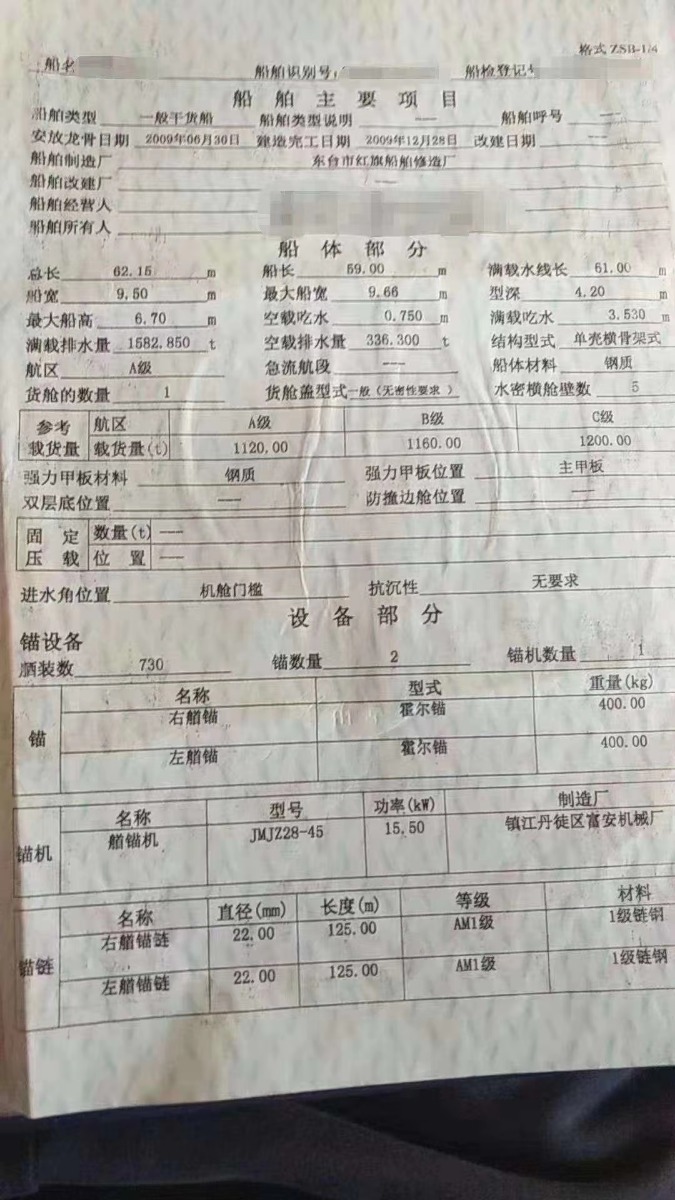 格式 ZSB-1/4
船名 船舶识别号 船检登记号
船舶主要项目
船舶类型 一般干货船 船舶类型说明 --- 船舶呼号 ---
安放龙骨日期 2009年06月30日 建造完工日期 2009年12月28日 改建日期 ---
船舶制造厂 东台市红旗船舶修造厂
船舶改建厂 ---
船舶经营人
船舶所有人
船体部分
总长 62.15 m 船长 59.00 m 满载水线长 61.00 m
船宽 9.50 m 最大船宽 9.66 m 型深 4.20 m
最大船高 6.70 m 空载吃水 0.750 m 满载吃水 3.530 m
满载排水量 1582.850 t 空载排水量 336.300 t 结构型式 单壳横骨架式
航区 A级 急流航段 --- 船体材料 钢质
货舱的数量 1 货舱盖型式 一般（无密性要求） 水密横舱壁数 5
参考 航区 A级 B级 C级
载货量 载货量(t) 1120.00 1160.00 1200.00
强力甲板材料 钢质 强力甲板位置 主甲板
双层底位置 --- 防撞边舱位置 ---
固定 数量(t) ---
压载 位置 ---
进水角位置 机舱门槛 抗沉性 无要求
设备部分
锚设备
舾装数 730 锚数量 2 锚机数量 1
名称 型式 重量(kg)
锚 右艏锚 霍尔锚 400.00
左艏锚 霍尔锚 400.00
名称 型号 功率(kW) 制造厂
锚机 艏锚机 JMJZ28-45 15.50 镇江丹徒区富安机械厂
名称 直径(mm) 长度(m) 等级 材料
锚链 右艏锚链 22.00 125.00 AM1级 1级链钢
左艏锚链 22.00 125.00 AM1级 1级链钢